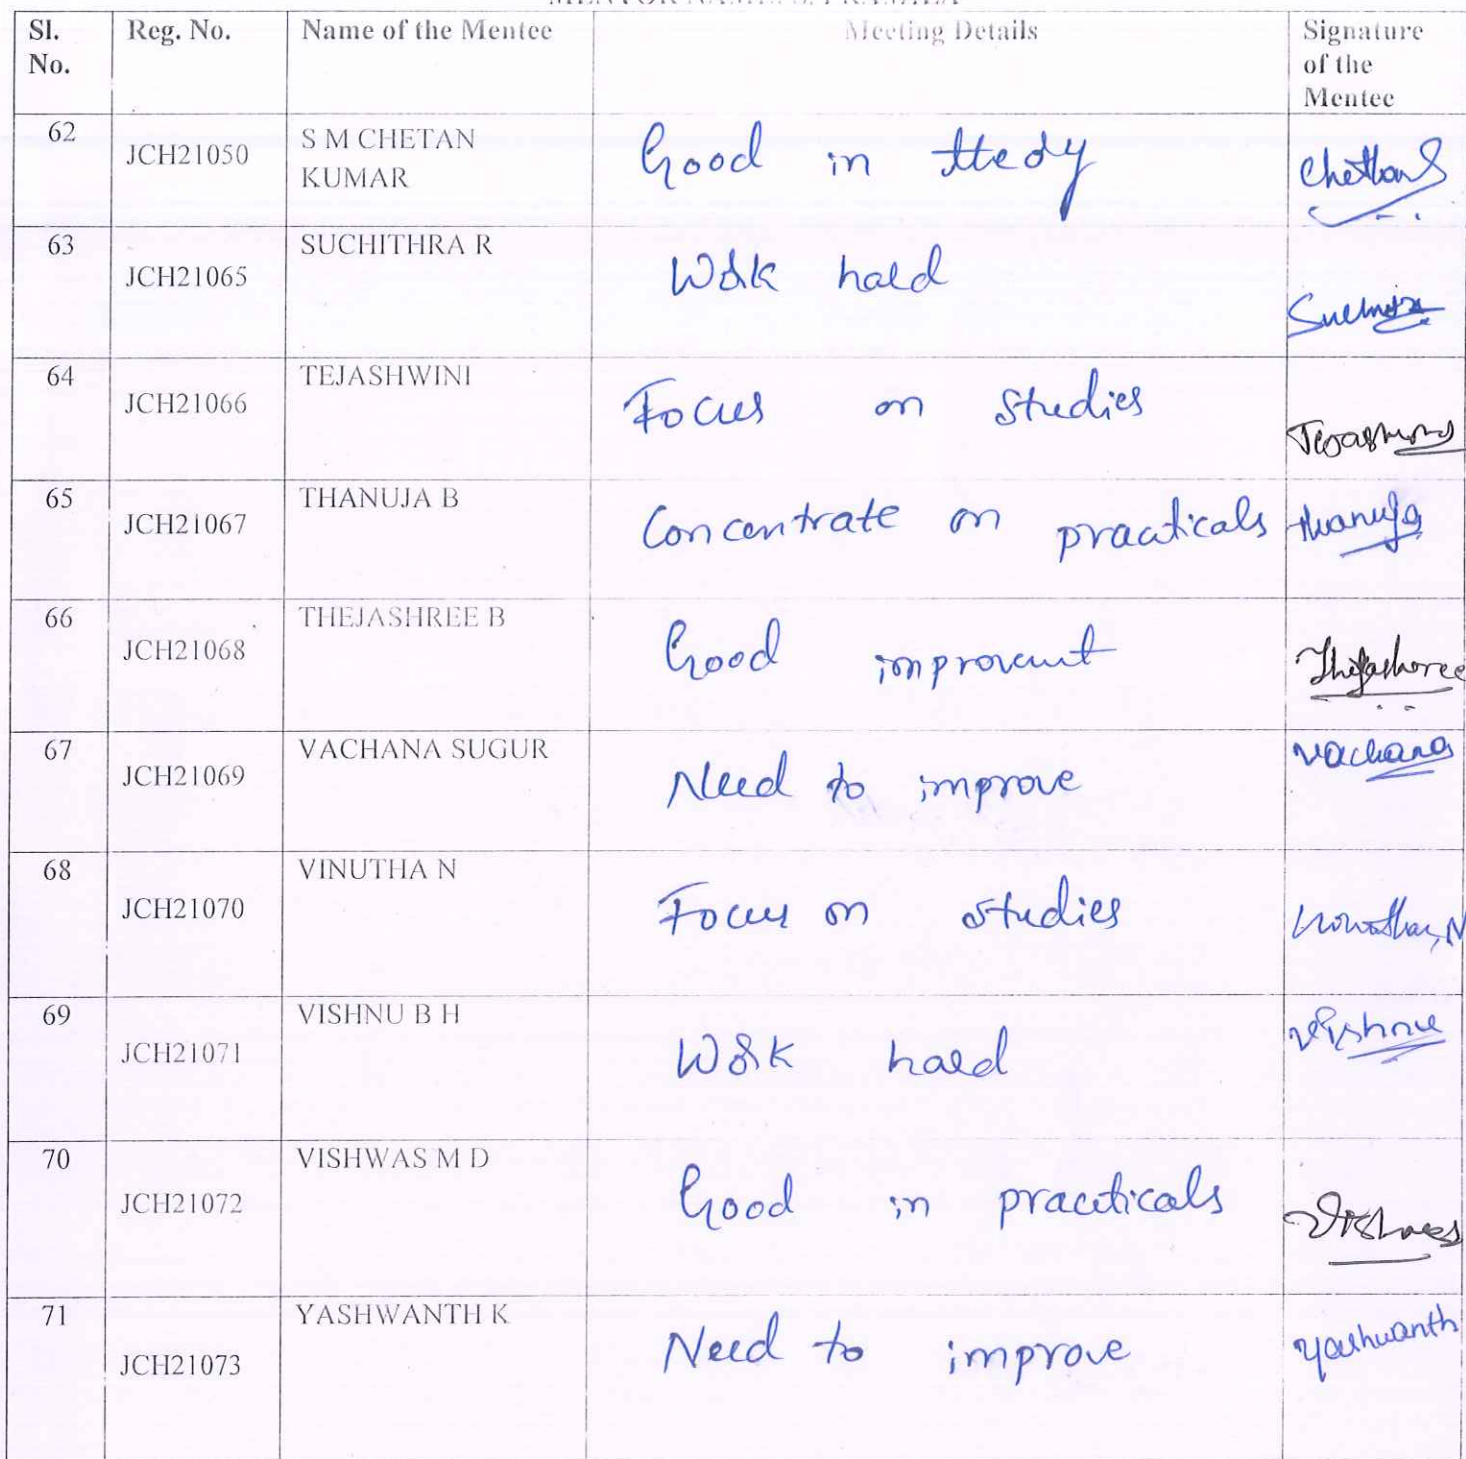 Sl. No. Reg. No. Name of the Mentee Meeting Details Signature of the Mentee
62 JCH21050 S M CHETAN KUMAR Good in Chethan S
63 JCH21065 SUCHITHRA R Work hard
64 JCH21066 TEJASHWINI Focus on studies
65 JCH21067 THANUJA B Concentrate on practicals thanuja
66 JCH21068 THEJASHREE B Good improvemt Thejashree
67 JCH21069 VACHANA SUGUR Need to improve vachana
68 JCH21070 VINUTHA N Focus on studies
69 JCH21071 VISHNU B H Work hard vishnu
70 JCH21072 VISHWAS M D Good in practicals Vishwas
71 JCH21073 YASHWANTH K Need to improve yashwanth